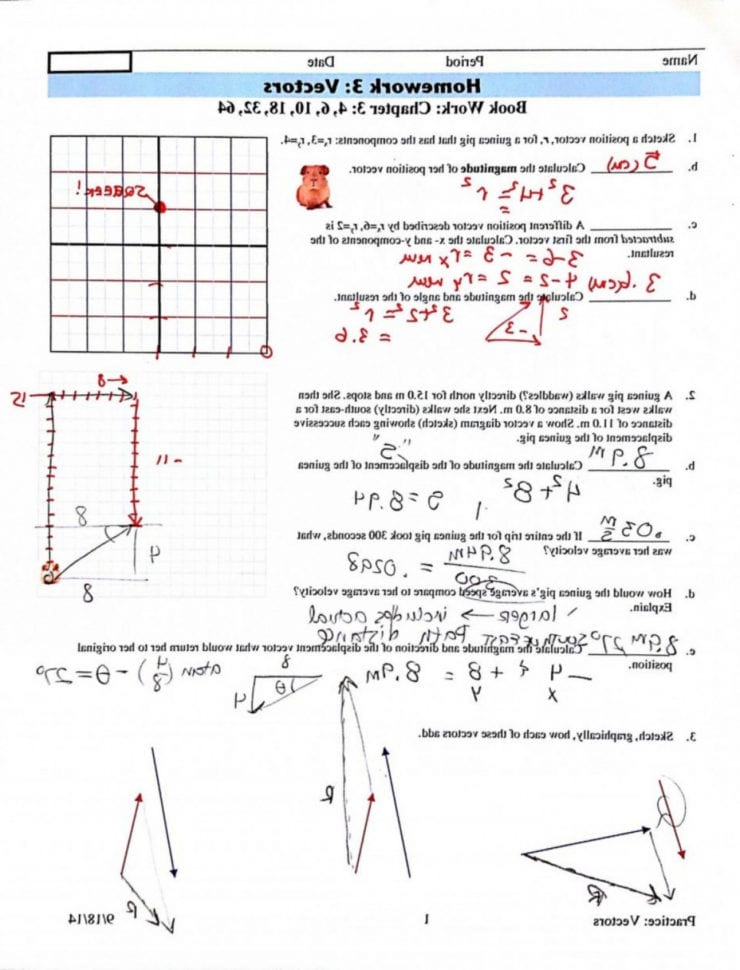 Name Period Date
Homework 3: Vectors
Book Work: Chapter 3: 4, 6, 10, 18, 32, 64
1. Sketch a position vector, r, for a guinea pig that has the components: rₓ=3, rᵧ=4.
b. 5 (cm) Calculate the magnitude of her position vector.
3²+4²=r²
SQUEEK!
c. A different position vector described by rₓ=6, rᵧ=2 is
subtracted from the first vector. Calculate the x- and y-components of the
resultant.
3-6 = -3 = rx new
4-2 = 2 = ry new
d. 3.6(cm) Calculate the magnitude and angle of the resultant.
3²+2²=r²
= 3.6
-3
2
2. A guinea pig walks (waddles?) directly north for 15.0 m and stops. She then
walks west for a distance of 8.0 m. Next she walks (directly) south-east for a
distance of 11.0 m. Show a vector diagram (sketch) showing each successive
displacement of the guinea pig.
8
15
-11
8
4
8
b. 8.9 m Calculate the magnitude of the displacement of the guinea
pig.
4²+8²
c. .03 m/s If the entire trip for the guinea pig took 300 seconds, what
was her average velocity?
8.94m/300 = .0298
d. How would the guinea pig's average speed compare to her average velocity?
Explain.
larger → includes actual
path distance
e. 8.9m 27° south of east Calculate the magnitude and direction of the displacement vector what would return her to her original
position.
= 8.9m
8
4
θ
atan (4/8) - θ = 27°
3. Sketch, graphically, how each of these vectors add.
R
R
R
Practice: Vectors 1 9/18/14